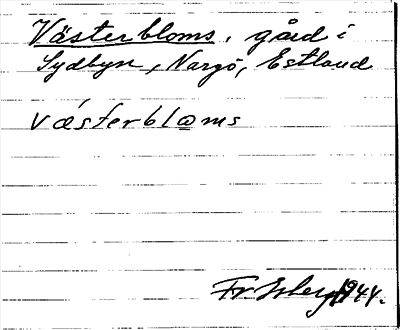 Västerbloms, gård i
Sydbyn, Nargö, Estland
västerbloms
Fr. Isberg 1944.